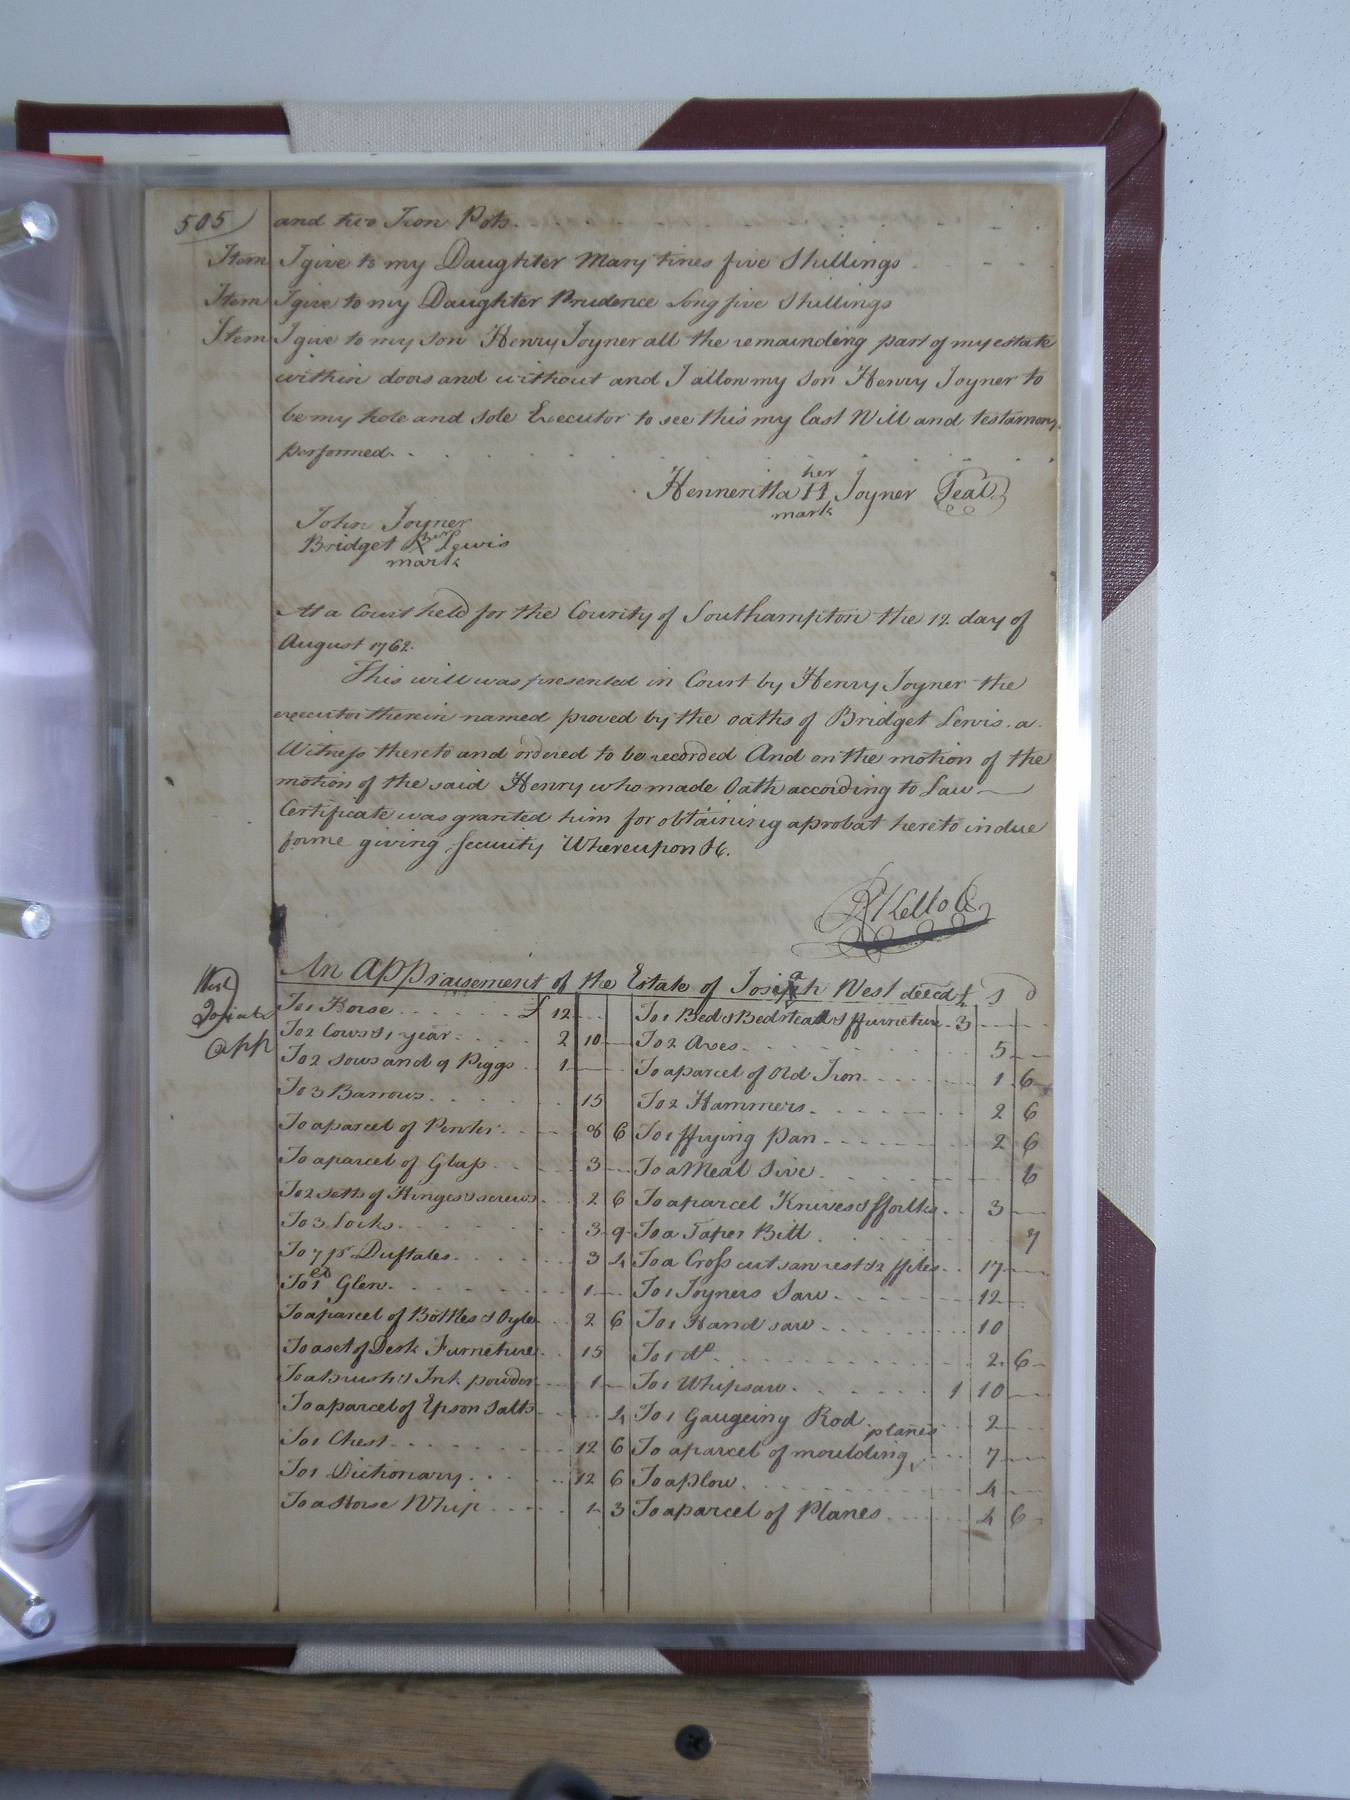 505) and two Iron Pots
Item I give to my Daughter Mary tines five Shillings
Item I give to my Daughter Prudence Long five Shillings
Item I give to my son Henry Joyner all the remainding part of my estate
within doors and without and I allow my son Henry Joyner to
be my hole and sole Executor to see this my last Will and testamony
performed
her
Henneritta H Joyner Seal
mark
John Joyner
Bridget X her Lewis
mark
At a Court held for the County of Southampton the 12 day of
August 1762.
This will was presented in Court by Henry Joyner the
executor therein named proved by the oaths of Bridget Lewis a
Witness thereto and ordered to be recorded And on the motion of the
motion of the said Henry who made Oath according to Law
Certificate was granted him for obtaining a probat hereto in due
forme giving security Whereupon &c.
R Kello C
An Appraisement of the Estate of Josiah West decd £ s d
West
Josiah
app
To 1 Horse £ 12
To 2 Cows & 1 year 2 10
To 2 Sows and 9 Piggs 1
To 3 Barrows 15
To a parcel of Pewter 8 6
To a parcel of Glass 3
To 2 setts of Hinges & screws 2 6
To 3 Locks 3 9
To 7 pr Duftales 3 4
To 1 Glew 1
To a parcel of Bottles & Oyle 2 6
To a set of Desk Furneture 15
To a brush & Ink powder 1
To a parcel of Epson Salts 4
To 1 Chest 12 6
To 1 Dictionary 12 6
To a Horse Whip 1 3
To 1 Bed & Bedstead & ffurneture 3
To 2 Axes 5
To a parcel of Old Iron 1 6
To 2 Hammers 2 6
To 1 ffrying pan 2 6
To a Meal Sive 6
To a parcel Knives & fforks 3
To a Taper Bitt 7
To a Cross cut saw rest & 2 ffiles 17
To 1 Joyners Saw 12
To 1 Hand saw 10
To 1 do 2 6
To 1 Whipsaw 1 10
To 1 Gaugeing Rod 2
To a parcel of moulding planes 7
To a plow 4
To a parcel of Planes 4 6